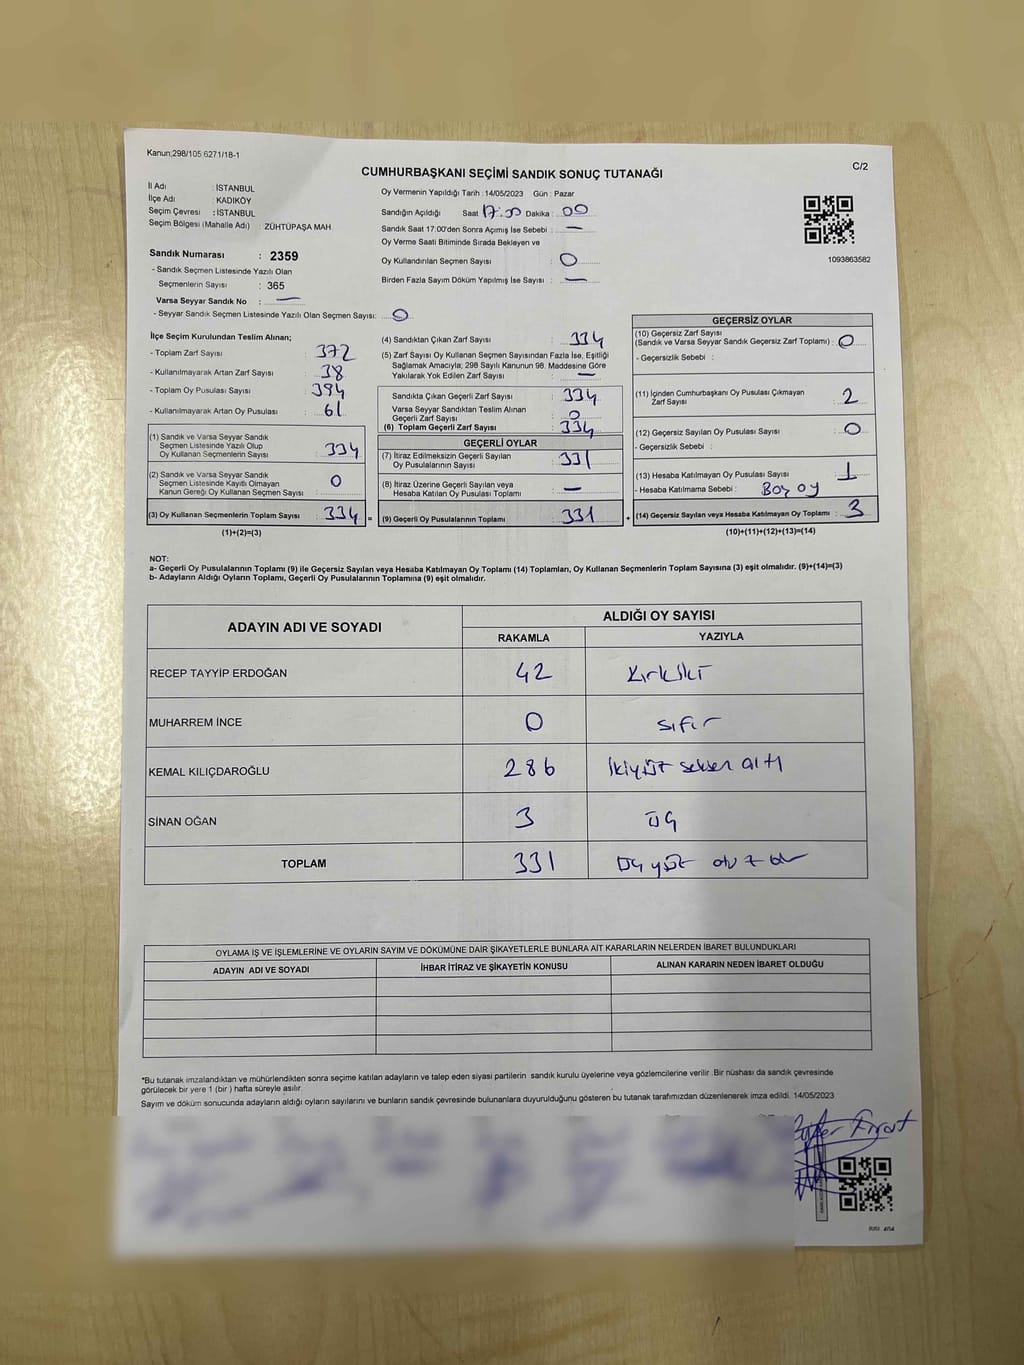 Kanun;298/105 6271/18-1
C/2
CUMHURBAŞKANI SEÇİMİ SANDIK SONUÇ TUTANAĞI
İl Adı : İSTANBUL
İlçe Adı : KADIKÖY
Seçim Çevresi : İSTANBUL
Seçim Bölgesi (Mahalle Adı) : ZÜHTÜPAŞA MAH.
Sandık Numarası : 2359
- Sandık Seçmen Listesinde Yazılı Olan
Seçmenlerin Sayısı : 365
Varsa Seyyar Sandık No : —
- Seyyar Sandık Seçmen Listesinde Yazılı Olan Seçmen Sayısı: 0
Oy Vermenin Yapıldığı Tarih : 14/05/2023 Gün : Pazar
Sandığın Açıldığı Saat 17:00 Dakika : 00
Sandık Saat 17:00'den Sonra Açımış İse Sebebi : —
Oy Verme Saati Bitiminde Sırada Bekleyen ve
Oy Kullandırılan Seçmen Sayısı : 0
Birden Fazla Sayım Döküm Yapılmış İse Sayısı : —
1093863582
İlçe Seçim Kurulundan Teslim Alınan;
- Toplam Zarf Sayısı : 372
- Kullanılmayarak Artan Zarf Sayısı : 38
- Toplam Oy Pusulası Sayısı : 394
- Kullanılmayarak Artan Oy Pusulası : 61
(1) Sandık ve Varsa Seyyar Sandık
Seçmen Listesinde Yazılı Olup
Oy Kullanan Seçmenlerin Sayısı : 334
(2) Sandık ve Varsa Seyyar Sandık
Seçmen Listesinde Kayıtlı Olmayan
Kanun Gereği Oy Kullanan Seçmen Sayısı : 0
(3) Oy Kullanan Seçmenlerin Toplam Sayısı : 334 =
(1)+(2)=(3)
(4) Sandıktan Çıkan Zarf Sayısı : 334
(5) Zarf Sayısı Oy Kullanan Seçmen Sayısından Fazla İse, Eşitliği
Sağlamak Amacıyla; 298 Sayılı Kanunun 98. Maddesine Göre
Yakılarak Yok Edilen Zarf Sayısı : —
Sandıkta Çıkan Geçerli Zarf Sayısı : 334
Varsa Seyyar Sandıktan Teslim Alınan
Geçerli Zarf Sayısı : 0
(6) Toplam Geçerli Zarf Sayısı : 334
GEÇERLİ OYLAR
(7) İtiraz Edilmeksizin Geçerli Sayılan
Oy Pusulalarının Sayısı : 331
(8) İtiraz Üzerine Geçerli Sayılan veya
Hesaba Katılan Oy Pusulaları Toplamı : —
(9) Geçerli Oy Pusulalarının Toplamı : 331 +
GEÇERSİZ OYLAR
(10) Geçersiz Zarf Sayısı
(Sandık ve Varsa Seyyar Sandık Geçersiz Zarf Toplamı) : 0
- Geçersizlik Sebebi :
(11) İçinden Cumhurbaşkanı Oy Pusulası Çıkmayan
Zarf Sayısı : 2
(12) Geçersiz Sayılan Oy Pusulası Sayısı : 0
- Geçersizlik Sebebi :
(13) Hesaba Katılmayan Oy Pusulası Sayısı : 1
- Hesaba Katılmama Sebebi : Boş oy
(14) Geçersiz Sayılan veya Hesaba Katılmayan Oy Toplamı : 3
(10)+(11)+(12)+(13)=(14)
NOT:
a- Geçerli Oy Pusulalarının Toplamı (9) ile Geçersiz Sayılan veya Hesaba Katılmayan Oy Toplamı (14) Toplamları, Oy Kullanan Seçmenlerin Toplam Sayısına (3) eşit olmalıdır. (9)+(14)=(3)
b- Adayların Aldığı Oyların Toplamı, Geçerli Oy Pusulalarının Toplamına (9) eşit olmalıdır.
ADAYIN ADI VE SOYADI
ALDIĞI OY SAYISI
RAKAMLA YAZIYLA
RECEP TAYYİP ERDOĞAN 42 Kırkiki
MUHARREM İNCE 0 sıfır
KEMAL KILIÇDAROĞLU 286 İkiyüz seksen altı
SİNAN OĞAN 3 üç
TOPLAM 331 Üçyüz otuz bir
OYLAMA İŞ VE İŞLEMLERİNE VE OYLARIN SAYIM VE DÖKÜMÜNE DAİR ŞİKAYETLERLE BUNLARA AİT KARARLARIN NELERDEN İBARET BULUNDUKLARI
ADAYIN ADI VE SOYADI İHBAR İTİRAZ VE ŞİKAYETİN KONUSU ALINAN KARARIN NEDEN İBARET OLDUĞU
*Bu tutanak imzalandıktan ve mühürlendikten sonra seçime katılan adayların ve talep eden siyasi partilerin sandık kurulu üyelerine veya gözlemcilerine verilir. Bir nüshası da sandık çevresinde
görülecek bir yere 1 (bir ) hafta süreyle asılır.
Sayım ve döküm sonucunda adayların aldığı oyların sayılarını ve bunların sandık çevresinde bulunanlara duyurulduğunu gösteren bu tutanak tarafımızdan düzenlenerek imza edildi. 14/05/2023